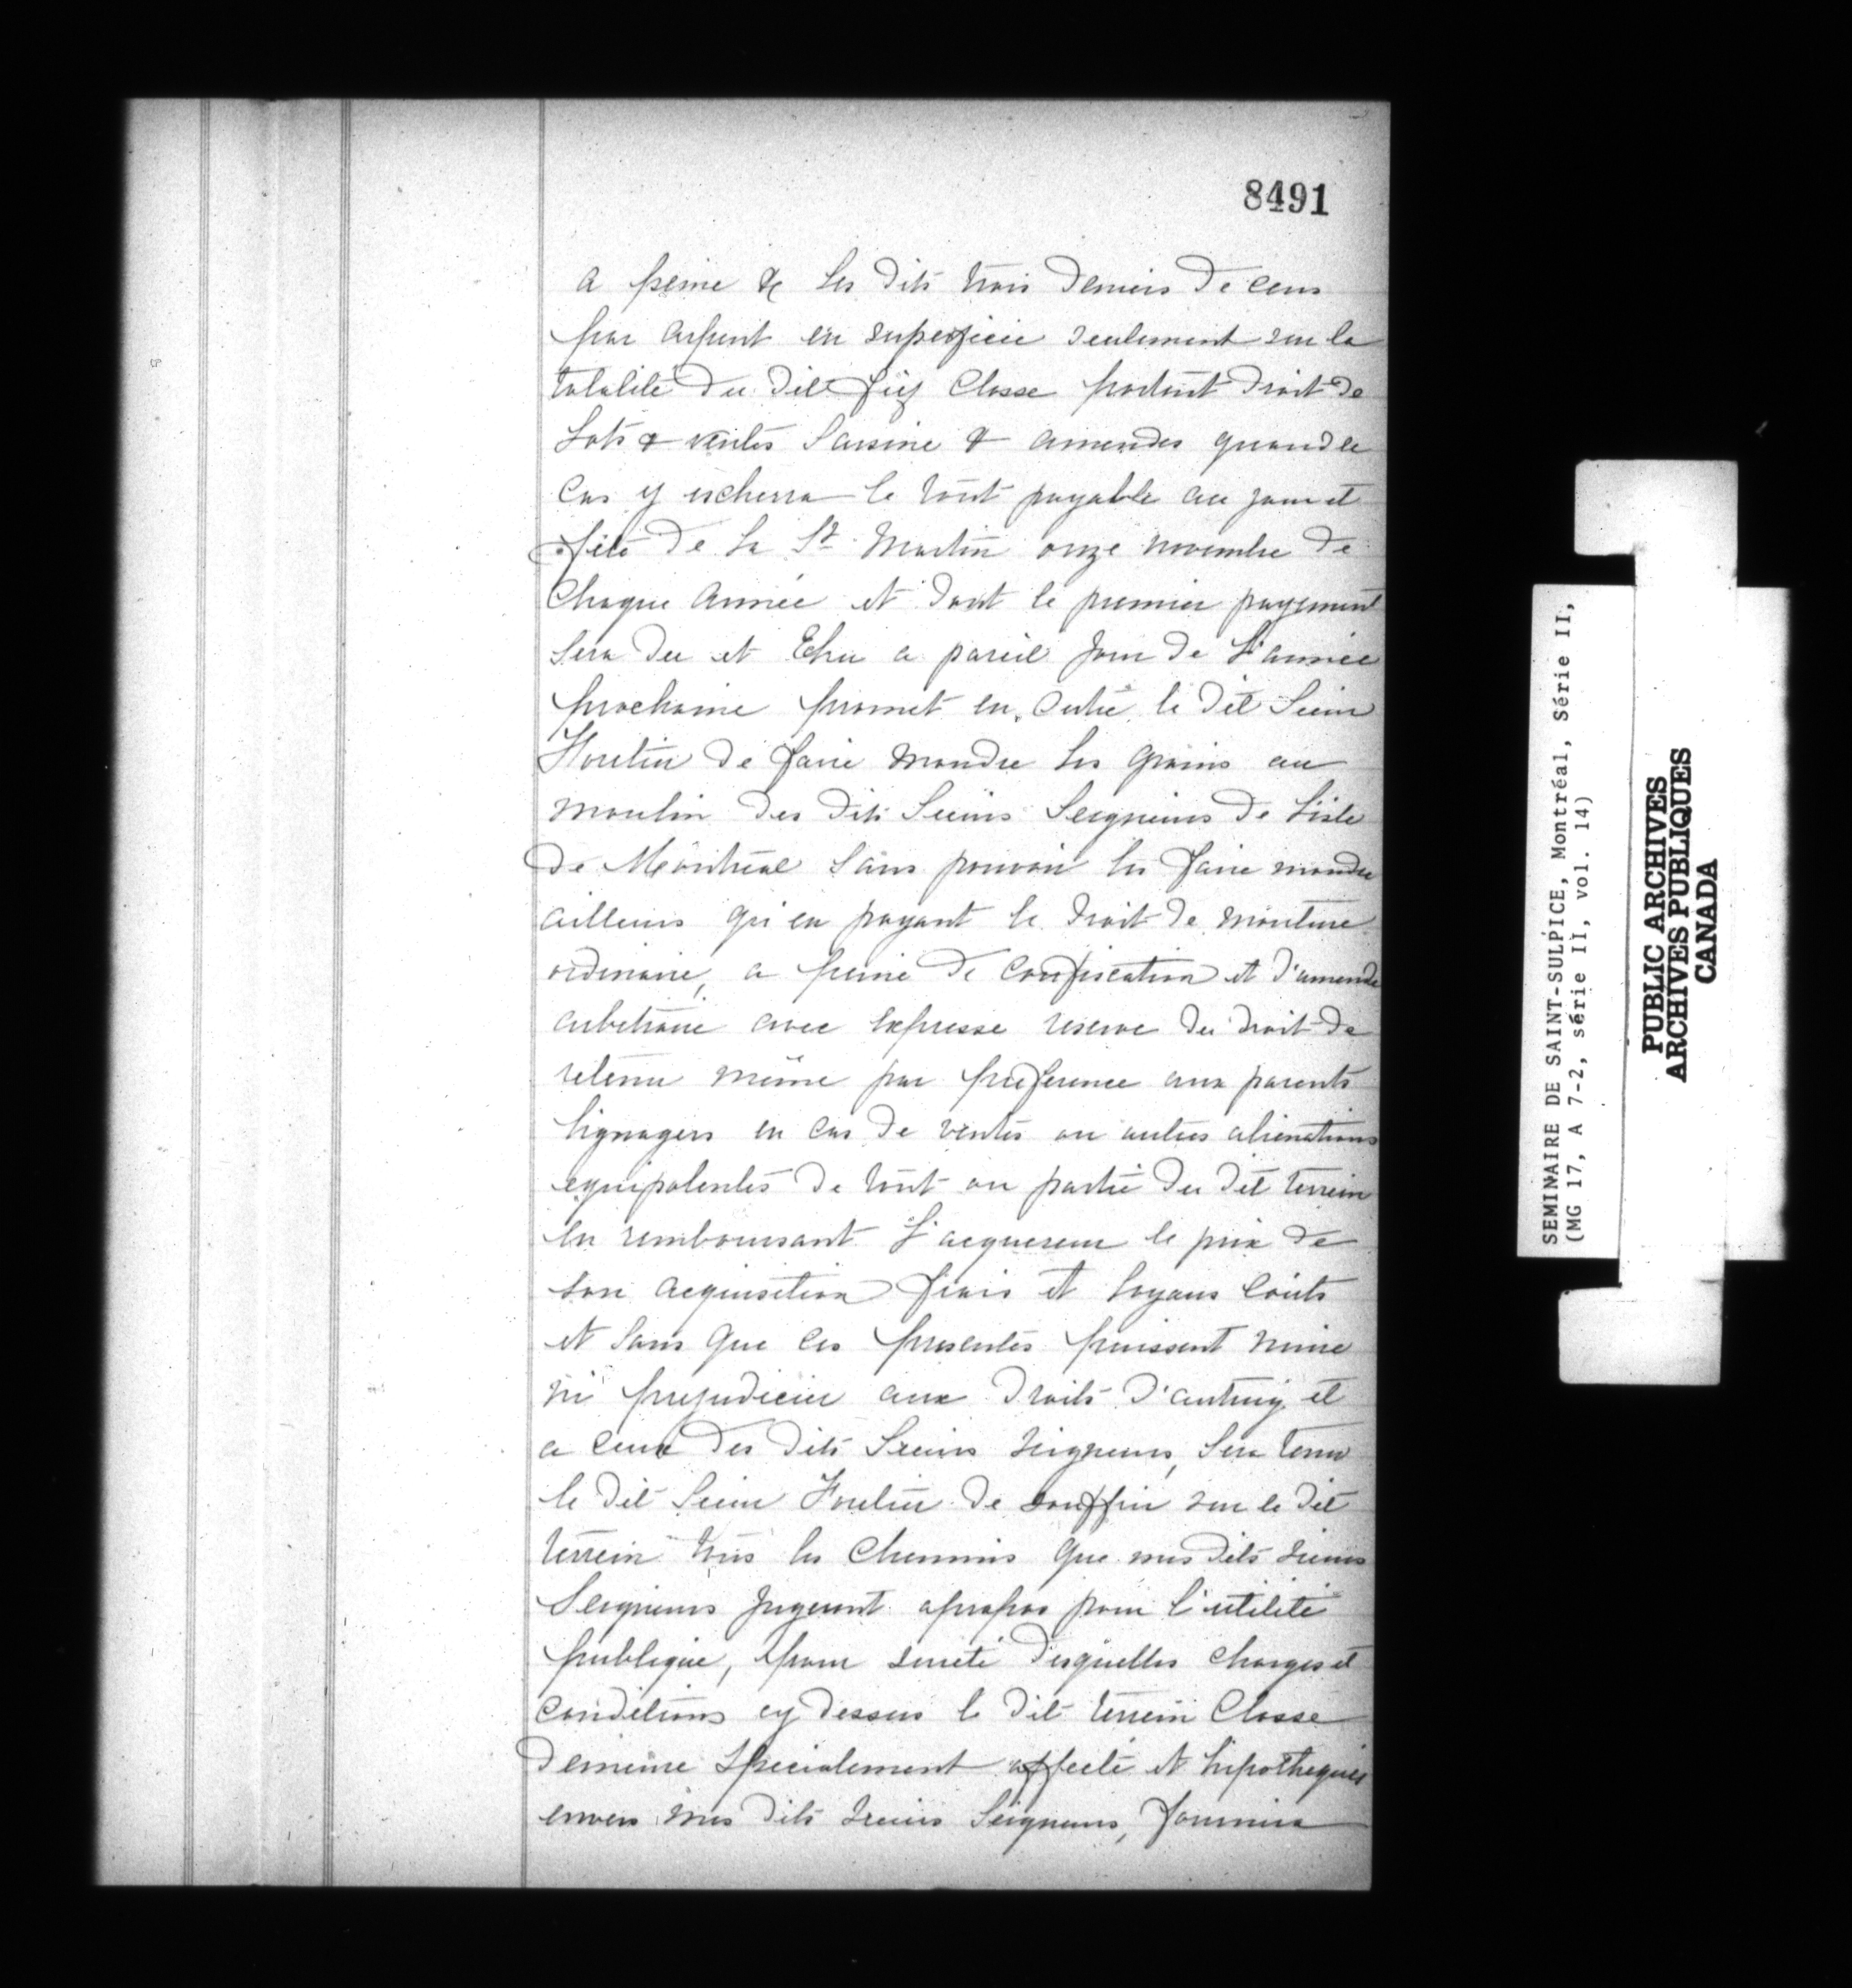 8491
a peine & les dits trois deniers de cens
par arpent en superficie seulement sur la
totalité du dit fief Closse portant droit de
Lots & ventes Saisine & amendes quand le
Cas y escherra le tout payable au jour et
fête de la St Martin onze novembre de
Chaque Année et dont le premier payement
sera du et Echu a pareil jour de L'année
prochaine promet en outre le dit Sieur
de faire moudre les grains au
moulin des dits Sieurs Seigneurs de Lisle
de Montréal sans pouvoir les faire moudre
ailleurs qu'en payant le droit de mouture
ordinaire, a peine de confiscation et d'amende
arbitraire avec expresse reserve du droit de
retenu même par preference aux parents
lignagers en cas de ventes ou autres alienations
equipolentes de tout ou partie du dit terrein
en remboursant L'acquereur le prix de
son acquisition frais et loyaus Coûts
et sans que ces presentes puissent nuire
ni prejudicier aux droits d'autruy et
a ceux des dits Sieurs Seigneurs, Sera tenu
le dit Sieur de souffrir sur le dit
terrein tous les Chemins que mes dits sieurs
Seigneurs jugeront apropos pour l'utilité
publique, pour sureté desquelles charges et
conditions cy dessus le dit terrein Closse
demeure specialement affecté et hipothequés
envers mes dits sieurs Seigneurs, fournira
SEMINAIRE DE SAINT-SULPICE, Montréal, Série II,
(MG 17, A 7-2, série II, vol. 14)
PUBLIC ARCHIVES
ARCHIVES PUBLIQUES
CANADA